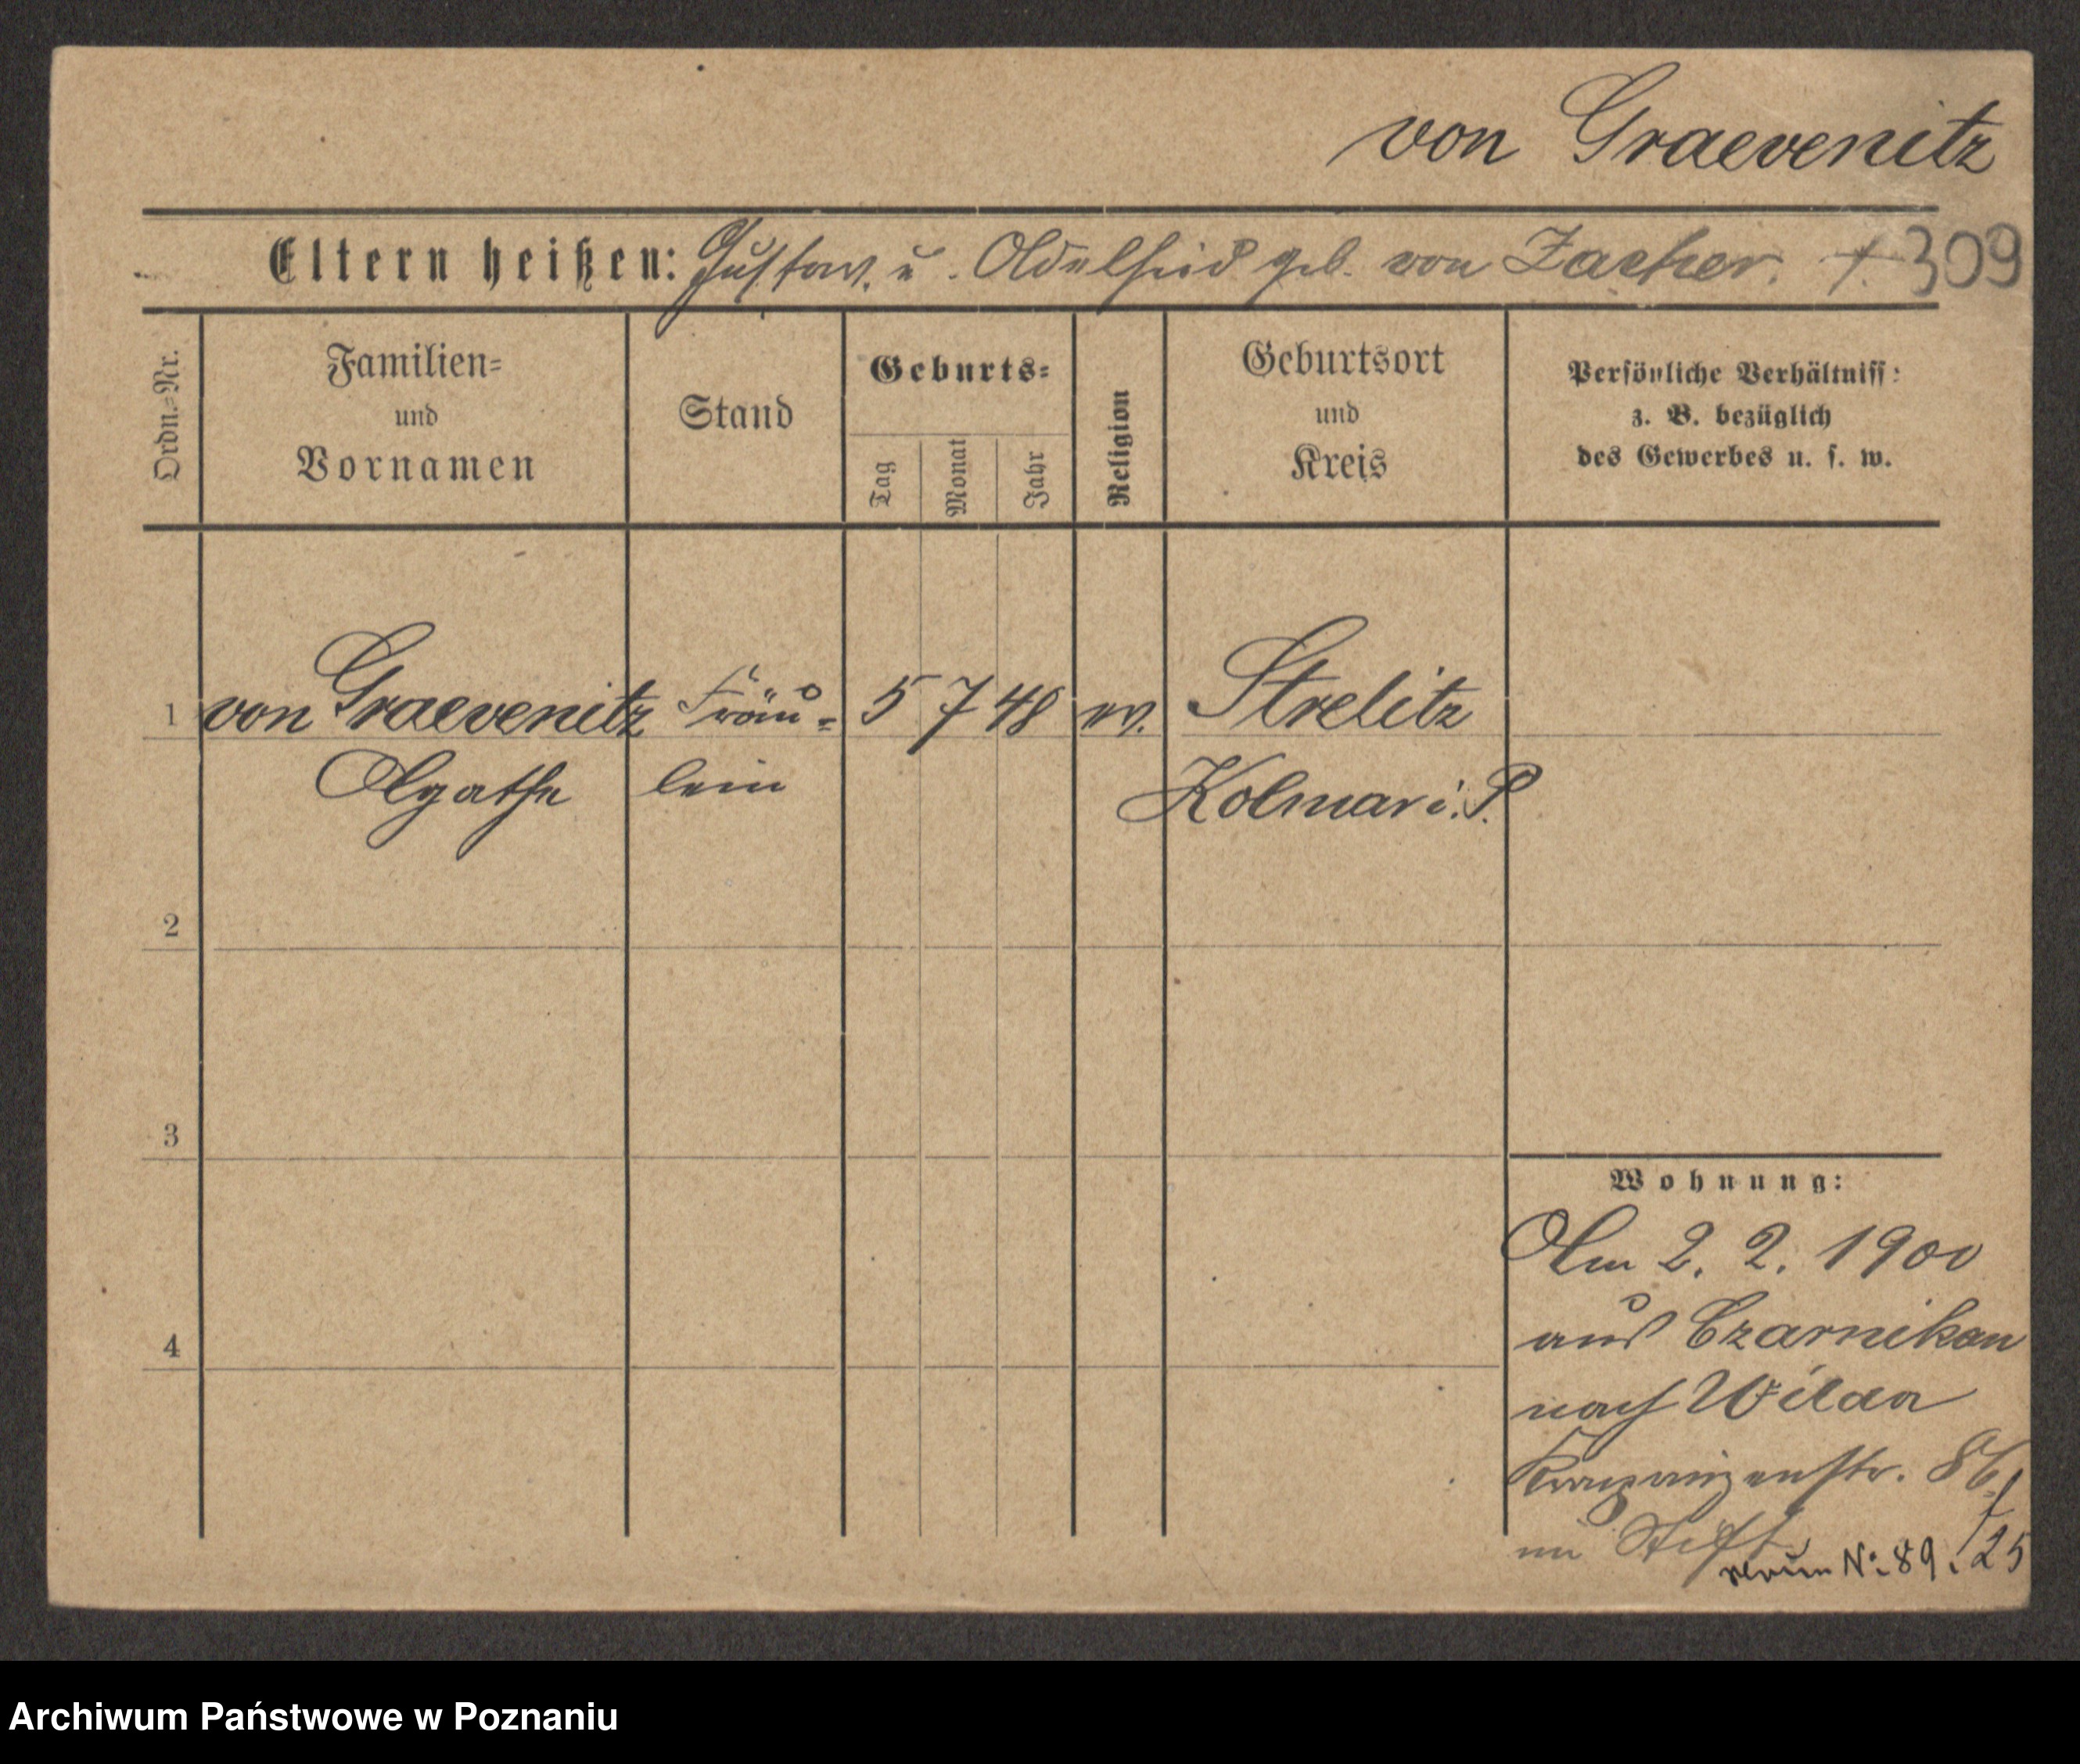 von Graevenitz
Eltern heißen: Gustav u. Adelheid geb. von Zacher. †. 309
Ordn.-Nr.
Familien-
und
Vornamen
Stand
Geburts-
Tag
Monat
Jahr
Religion
Geburtsort
und
Kreis
Persönliche Verhältniss:
z. B. bezüglich
des Gewerbes u. s. w.
1 von Graevenitz Fräu- 5 7 48 ev. Strelitz
Agathe lein Kolmar i. P.
2
3
4
Wohnung:
Am 2. 2. 1900
aus Czarnikau
nach Wilda
Kronprinzenstr. 86
im Stift
neüe Nr. 89. /25
Archiwum Państwowe w Poznaniu